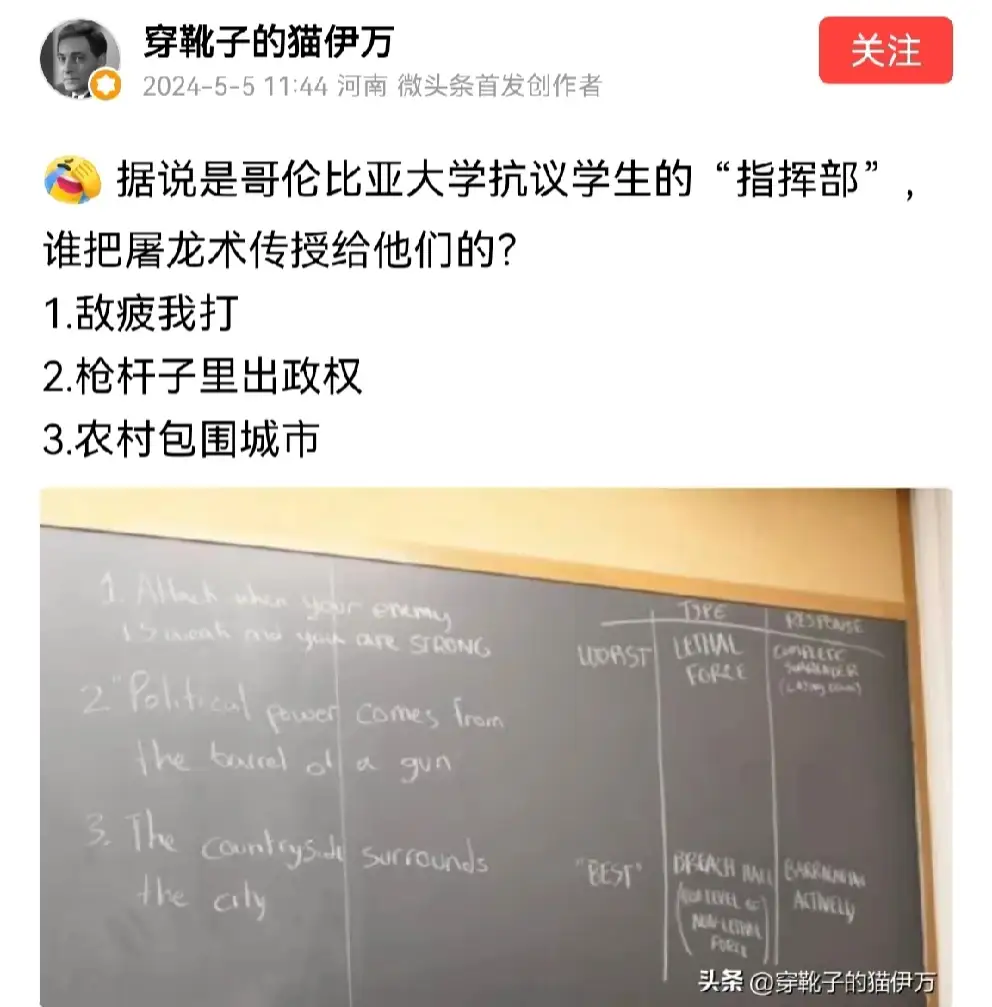 穿靴子的猫伊万
关注
2024-5-5 11:44 河南 微头条首发创作者
🤣 据说是哥伦比亚大学抗议学生的“指挥部”,
谁把屠龙术传授给他们的?
1.敌疲我打
2.枪杆子里出政权
3.农村包围城市
1. Attack when your enemy
is weak and you are STRONG
2 "Political power comes from
the barrel of a gun
3. The countryside surrounds
the city
TYPE RESPONSE
WORST LETHAL FORCE COMPLETE SURRENDER
(LAYING DOWN)
"BEST" BREACH HALL BARRICADING ACTIVELY
(LOW LEVEL OF
NON-LETHAL
FORCE)
头条 @穿靴子的猫伊万